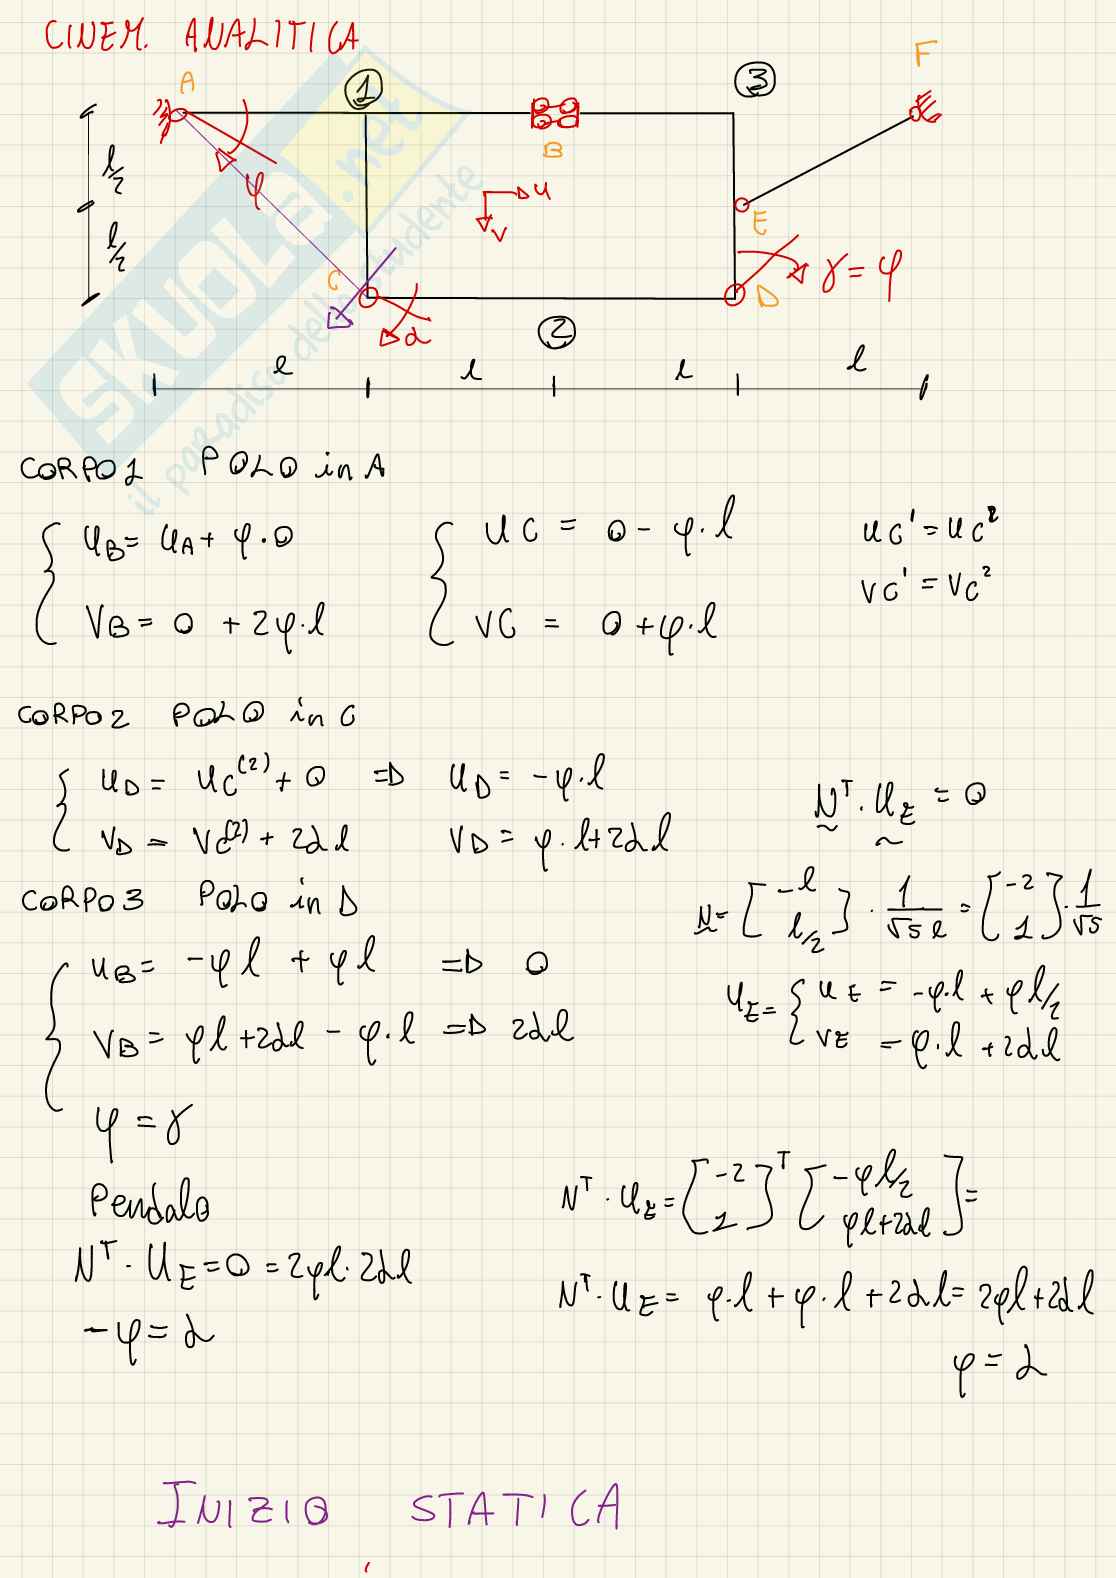 CINEM. ANALITICA
A
1
3
F
l/2
φ
B
u
v
E
l/2
C
γ = φ
D
α
2
l
l
l
l
SKUOLA.net
il paradiso dello studente
CORPO 1 POLO in A
uB = uA + φ·0
vB = 0 + 2φ·l
uC = 0 - φ·l
vC = 0 + φ·l
uC¹ = uC²
vC¹ = vC²
CORPO 2 POLO in C
uD = uC⁽²⁾ + 0 => uD = -φ·l
vD = vC⁽²⁾ + 2αl vD = φ·l + 2αl
Nᵀ·uE = 0
CORPO 3 POLO in D
uB = -φl + φl => 0
vB = φl + 2αl - φ·l => 2αl
φ = γ
N = [-l l/2] · 1/√5 l = [-2 1] · 1/√5
uE = { uE = -φ·l + φl/2
vE = φ·l + 2αl
Pendolo
Nᵀ·uE = 0 = 2φl·2αl
-φ = α
Nᵀ·uE = [-2 1]ᵀ [-φl/2 φl+2αl] =
Nᵀ·uE = φ·l + φ·l + 2αl = 2φl + 2αl
φ = α
INIZIO STATICA